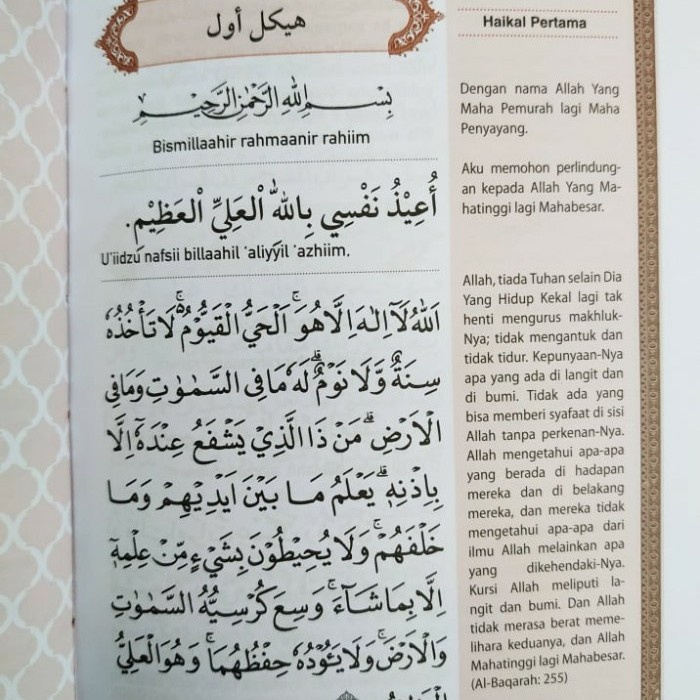 هيكل أول
بِسْمِ اللهِ الرَّحْمٰنِ الرَّحِيْمِ
Bismillaahir rahmaanir rahiim
أُعِيْذُ نَفْسِي بِاللهِ الْعَلِيِّ الْعَظِيْمِ.
U'iidzu nafsii billaahil 'aliyyil 'azhiim.
اَللهُ لَآ اِلٰهَ اِلَّا هُوَۚ اَلْحَيُّ الْقَيُّوْمُ ەۚ لَا تَأْخُذُهٗ
سِنَةٌ وَّلَا نَوْمٌۗ لَهٗ مَا فِى السَّمٰوٰتِ وَمَا فِى
الْاَرْضِۗ مَنْ ذَا الَّذِيْ يَشْفَعُ عِنْدَهٗٓ اِلَّا
بِاِذْنِهٖۗ يَعْلَمُ مَا بَيْنَ اَيْدِيْهِمْ وَمَا
خَلْفَهُمْۚ وَلَا يُحِيْطُوْنَ بِشَيْءٍ مِّنْ عِلْمِهٖٓ
اِلَّا بِمَا شَآءَۚ وَسِعَ كُرْسِيُّهُ السَّمٰوٰتِ
وَالْاَرْضَۚ وَلَا يَـُٔوْدُهٗ حِفْظُهُمَاۚ وَهُوَ الْعَلِيُّ
Haikal Pertama
Dengan nama Allah Yang
Maha Pemurah lagi Maha
Penyayang.
Aku memohon perlindung-
an kepada Allah Yang Ma-
hatinggi lagi Mahabesar.
Allah, tiada Tuhan selain Dia
Yang Hidup Kekal lagi tak
henti mengurus makhluk-
Nya; tidak mengantuk dan
tidak tidur. Kepunyaan-Nya
apa yang ada di langit dan
di bumi. Tidak ada yang
bisa memberi syafaat di sisi
Allah tanpa perkenan-Nya.
Allah mengetahui apa-apa
yang berada di hadapan
mereka dan di belakang
mereka, dan mereka tidak
mengetahui apa-apa dari
ilmu Allah melainkan apa
yang dikehendaki-Nya.
Kursi Allah meliputi la-
ngit dan bumi. Dan Allah
tidak merasa berat meme-
lihara keduanya, dan Allah
Mahatinggi lagi Mahabesar.
(Al-Baqarah: 255)